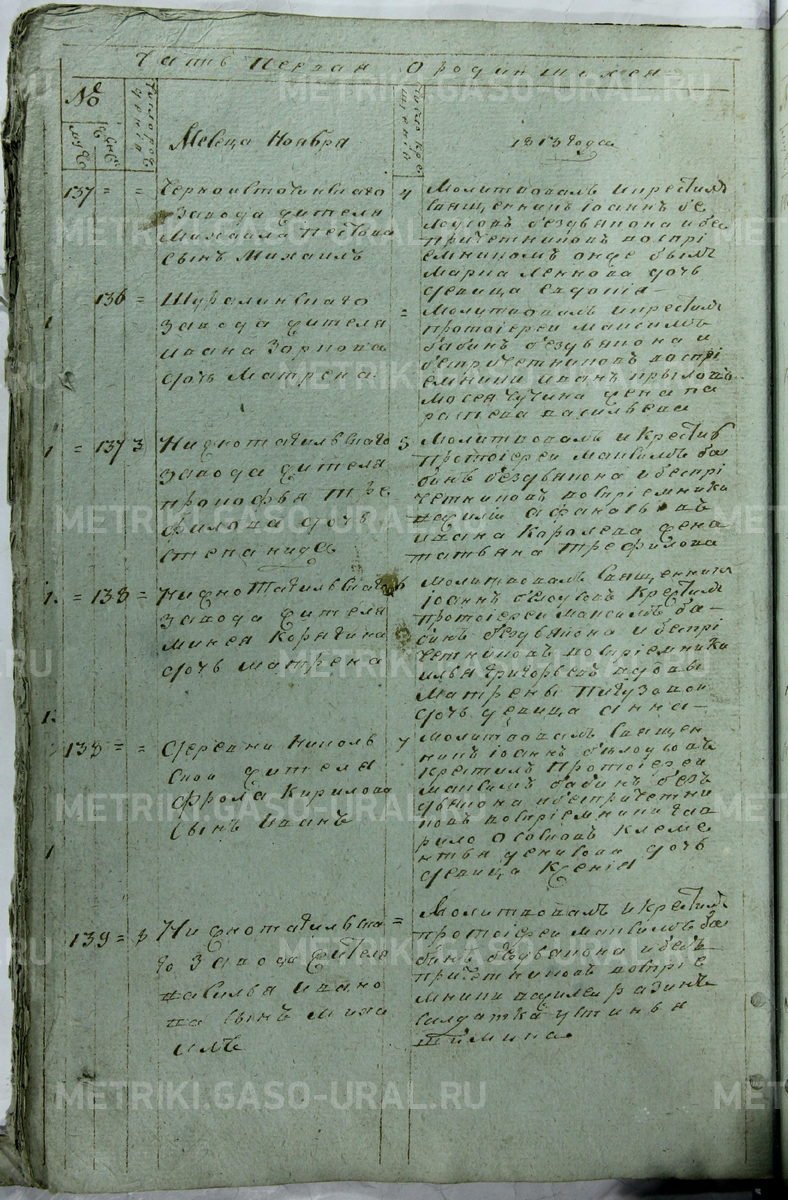 Часть Первая О родившихся
№
Месеца Ноября
1813 года
137 = =
Черноисточинскаго
завода жителя
Михаила Пестова
сынъ Михаилъ
4
Молитвовалъ и крестилъ
священникъ Iоаннъ Бе
лоусовъ без дьякона и без
причетниковъ воспрi
емникомъ онде былъ
дочь
девица Евдокiя
136 =
Шуралинскаго
завода жителя
Ивана Зоркова
дочь Матрена
=
Молитвовалъ и крестилъ
протоiерей Максимъ
Бабинъ без дьякона и
без причетниковъ воспрi
емники Иванъ Крылов
жена Па
раскева Васильева
= 137 3
Нижнотагильскаго
завода жителя
Прокофья Тре
филова дочь
Степанида
5
Молитвовалъ и крестилъ
протоiерей Максимъ Ба
бинъ без дьякона и без прi
четниковъ вовспрiемники
Ивана Королева жена
Татьяна Трефилова
= 138 =
Нижнотагильскаго
завода жителя
Минея Корягина
дочь Матрена
6
Молитвовалъ священникъ
Iоаннъ Белоусовъ крестилъ
протоiерей Максимъ Ба-
бинъ без дьякона и без прi
четниковъ вовспрiемники
Илья Григорьевъ вдовы
Матрены
дочь девица Анна-
138 = =
Деревни Николь
ской жителя
Фрола Кирилова
сынъ Иванъ
7
Молитвовалъ священ
никъ Iоаннъ Белоусовъ
крестилъ протоiерей
Максимъ Бабинъ без
дьякона и без причетни
ковъ вовспрiемники Гав
рило Клеме
нтья дочь
девица Ксенiя
139 = 8
Нижнотагильска
го завода жителя
Василья Ивано
ва сынъ Миха
илъ
=
Молитвовалъ и крестилъ
протоiерей Максимъ Ба
бинъ без дьякона и без
причетниковъ вовспрiе
мники Василей Разинъ
салдатка Устинья
METRIKI.GASO-URAL.RU